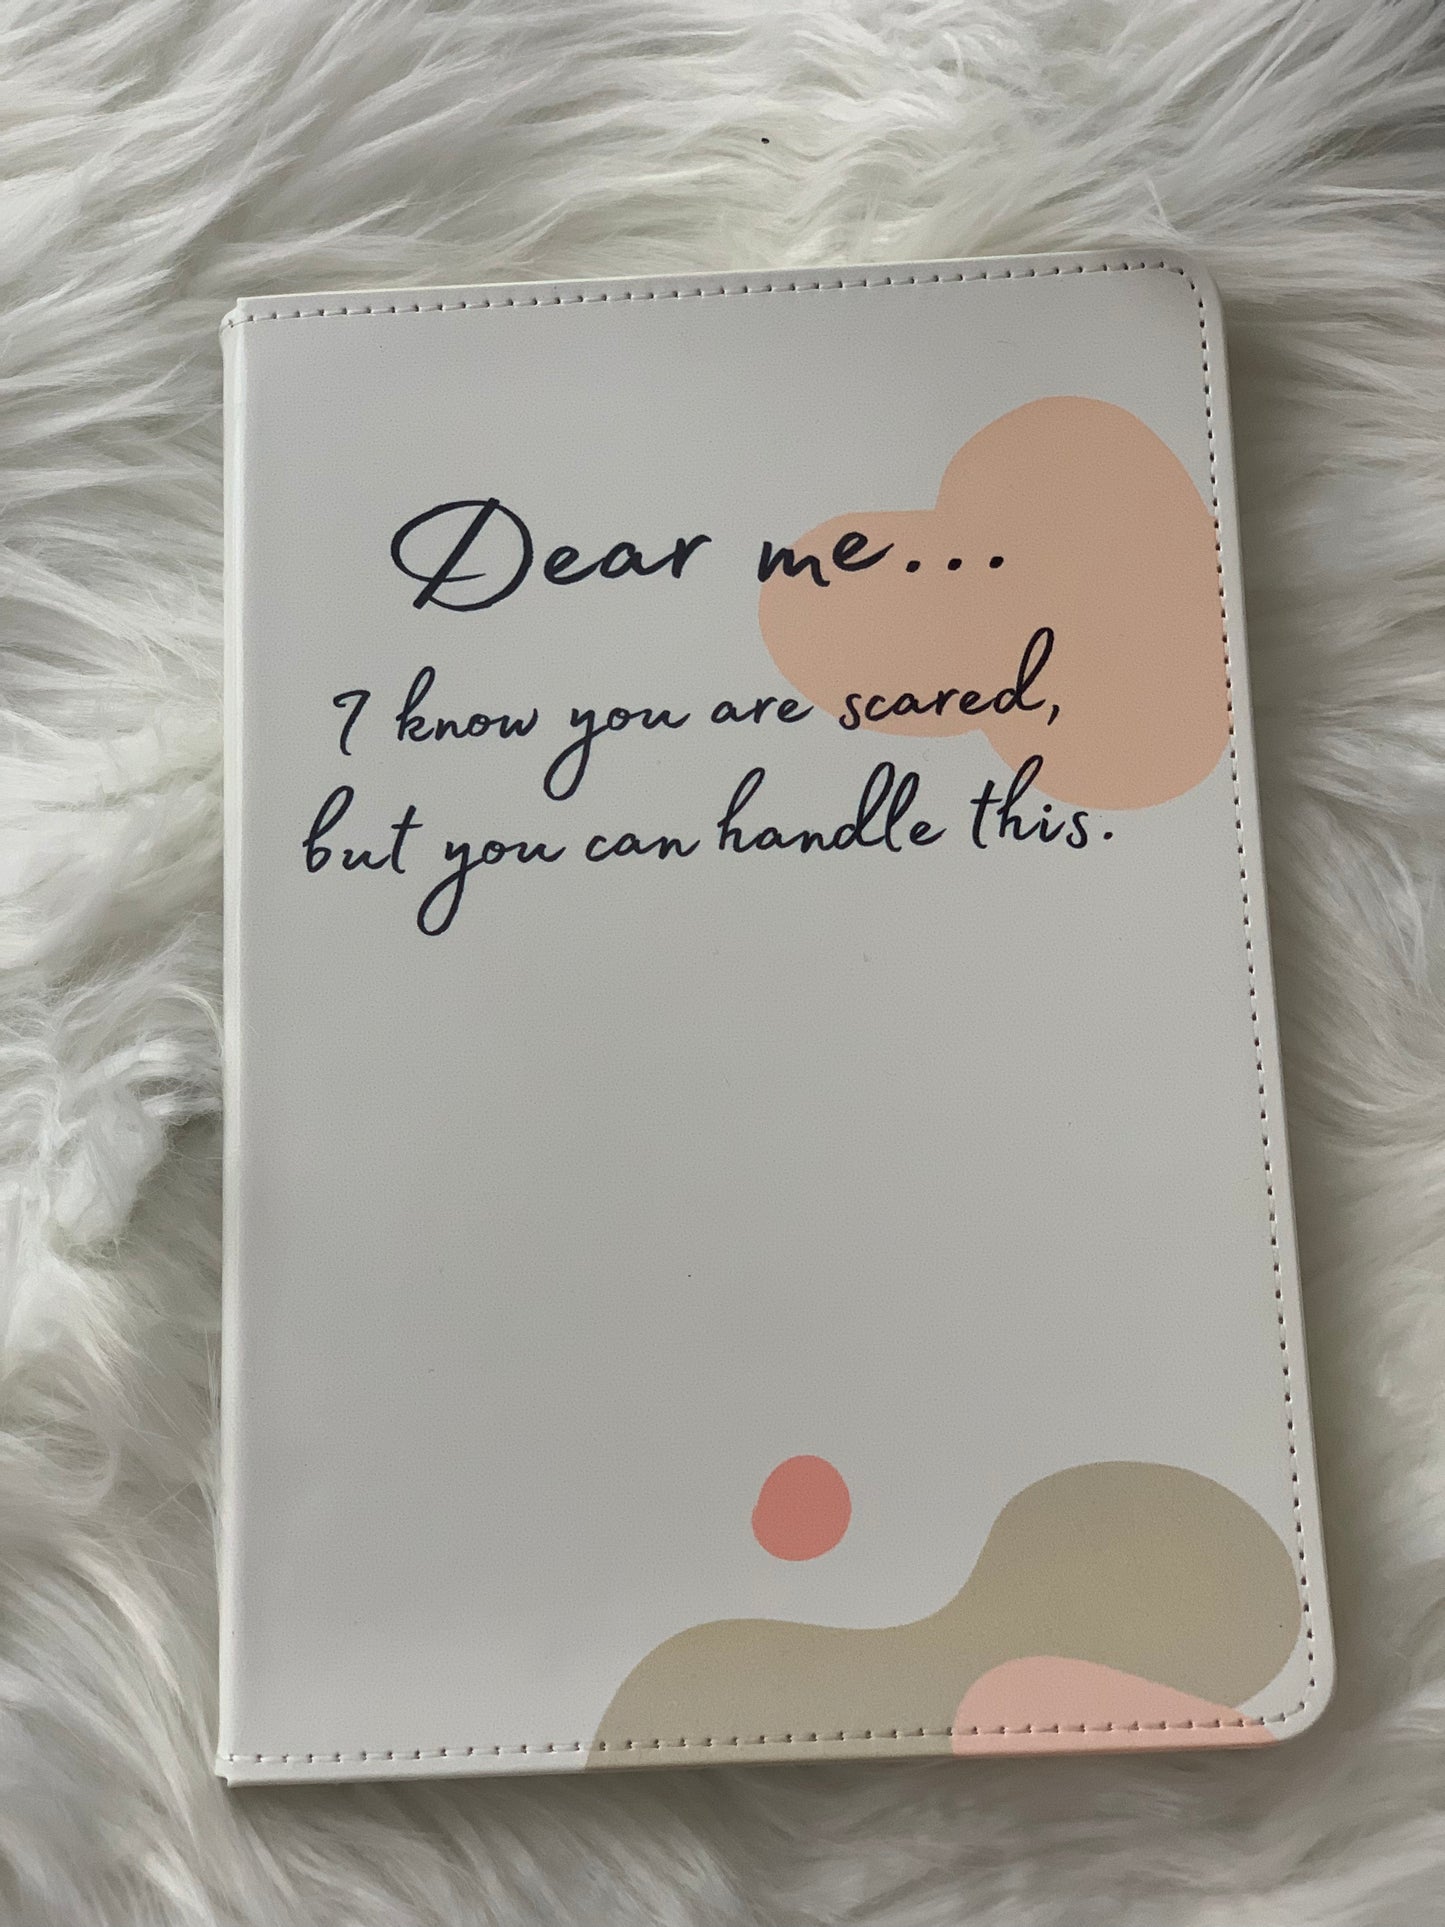 Dear me...
I know you are scared,
but you can handle this.